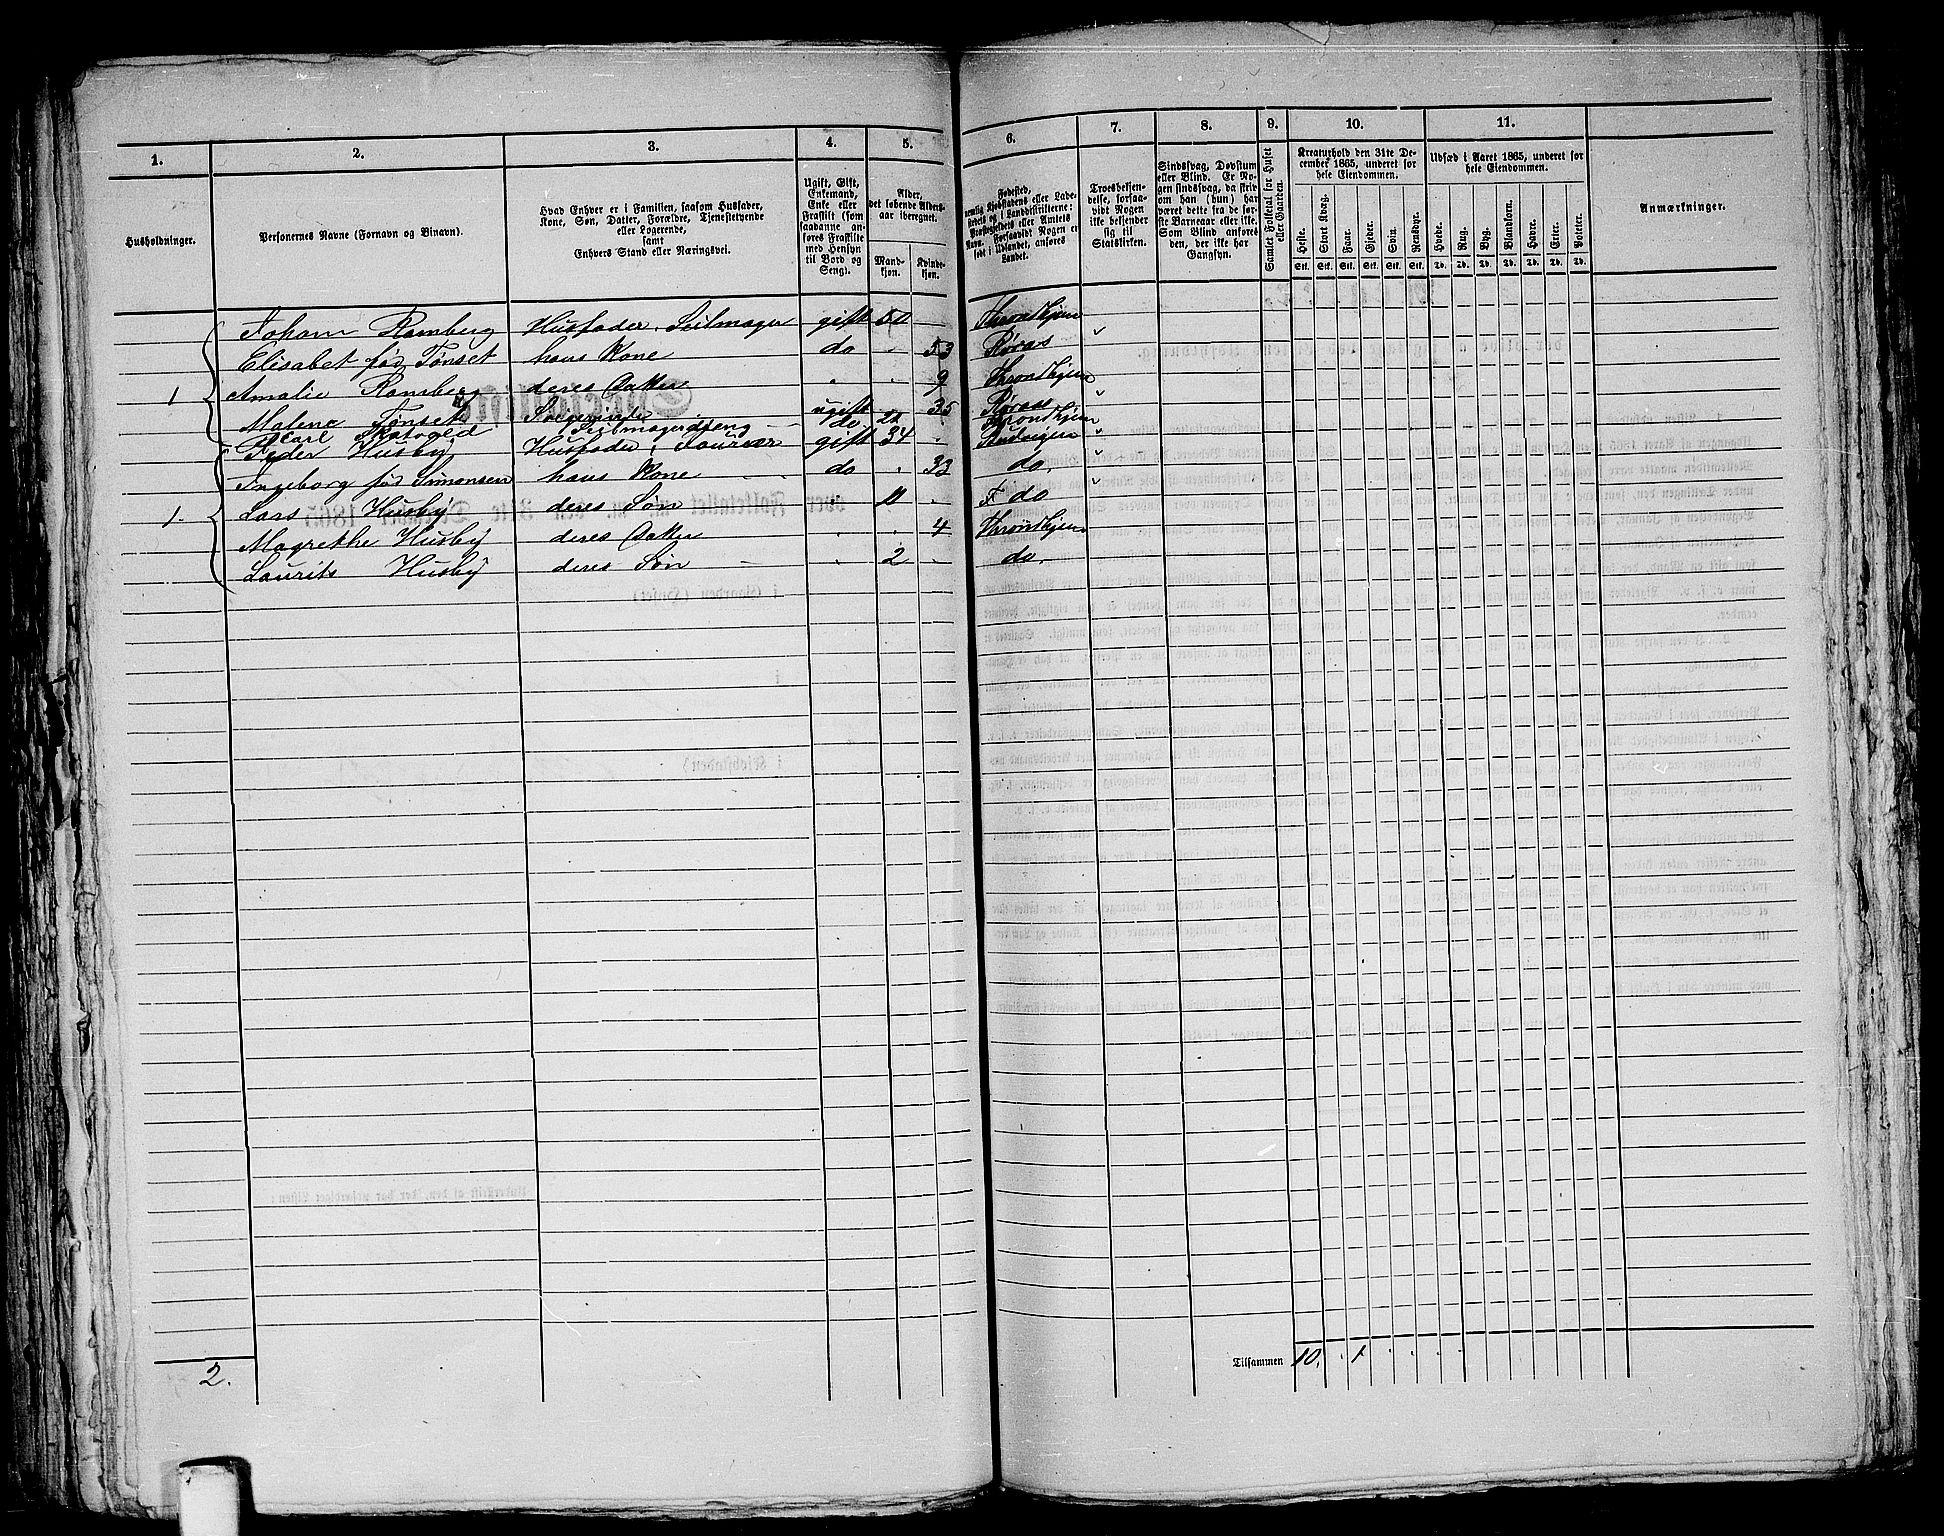 1. 2. 3. 4. 5. 6. 7. 8. 9. 10. 11.
Husholdninger.
Personernes Navne (Fornavn og Binavn).
Hvad Enhver er i Familien, saasom Husfader,
Kone, Søn, Datter, Forældre, Tjenestetyende
eller Logerende,
samt
Enhvers Stand eller Næringsvei.
Ugift, Gift,
Enkemand,
Enke eller
Fraskilt (som
saadanne an-
føres Fraskilte
med Hensyn
til Bord og
Seng).
Alder,
det løbende Alders-
aar iberegnet.
Mand-
kjøn.
Kvinde-
kjøn.
Fødested,
nemlig Kjøbstadens eller Lade-
stedets og i Landdistrikterne:
Præstegjeldets eller Amtets
Navn. Forsaavidt Nogen er
født i Udlandet, anføres
Landet.
Troesbekjen-
delse, forsaa-
vidt Nogen
ikke bekjender
sig til
Statskirken.
Sindssvag, Døvstum
eller Blind. Er No-
gen sindssvag, da skriv
om han (hun) har
været dette fra de før-
ste Barneaar eller ikke.
Som Blind anføres
den, der ikke har
Gangsyn.
Samlet Folketal for Huset
eller Gaarden.
Kreaturhold den 31te De-
cember 1865, underet for
hele Eiendommen.
Heste. Stort Kvæg. Faar. Gjeder. Svin. Rensdyr.
Stk. Stk. Stk. Stk. Stk. Stk.
Udsæd i Aaret 1865, underet for
hele Eiendommen.
Hvede. Rug. Byg. Blandkorn. Havre. Erter. Poteter.
Td. Td. Td. Td. Td. Td. Td.
Anmærkninger.
Johan Ramberg Husfader, Seilmager gift 50 — Throndhjem
Elisabet fød Tønset hans Kone do - 53 Røraas "
1 Amalie Ramberg deres Datter " - 9 Throndhjem
Malena Tønset ugift 35 Røraas "
Carl Seilmagerdreng do Throndhjem
Peder Husby Husfader, gift 34 -
Ingeborg fød Simonsen hans Kone do - 33 do, "
1. Lars Husby deres Søn " 11 - do
Magrethe Husby deres Datter . . 4 Throndhjem
Laurits Husby deres Søn — . 2 - do.
2.
Tilsammen 10. . 1 . . . .